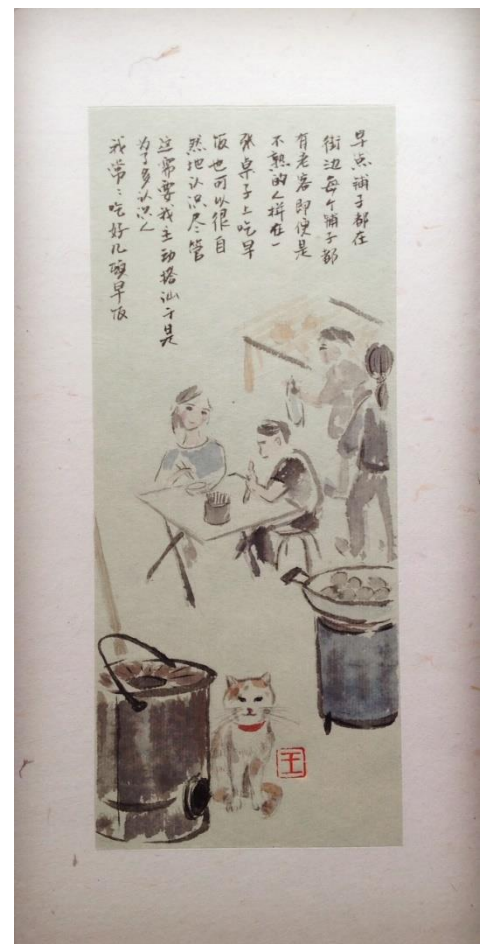 早点铺子都在
街边每个铺子都
有老客即便是
不熟的人拼在一
张桌子上吃早
饭也可以很自
然地认识尽管
这需要我主动搭讪于是
为了多认识人
我常々吃好几顿早饭
王